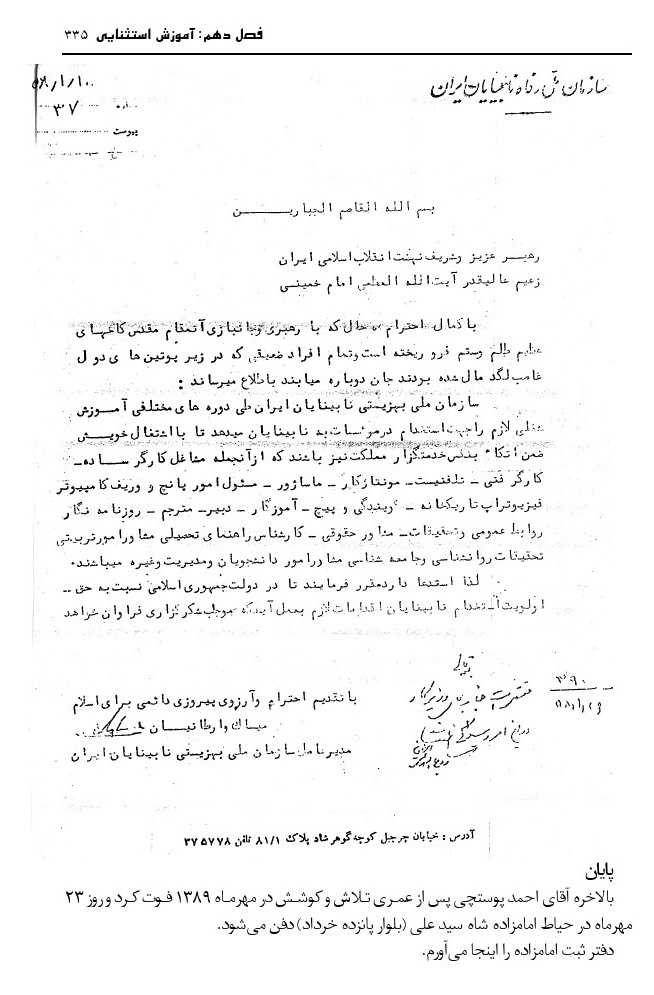 فصل دهم: آموزش استثنایی ۳۳۵
سازمان ملی رفاه نابینایان ایران
۵۸/۱/۱۰
۳۷
پیوست
بسم الله القاصم الجبارین
رهبر عزیز وشریف نهضت انقلاب اسلامی ایران
زعیم عالیقدر آیت الله العظمی امام خمینی
با کمال احترام که با رهبری وجانبازی آنمقام مقدس کاخهای
عظیم ظلم وستم فرو ریخته است وتمام افراد ضعیفی که در زیر پوتین های دول
غاصب لگد مال شده بودند جان دوباره میابند باطلاع میرساند :
سازمان ملی بهزیستی نابینایان ایران طی دوره های مختلفی آموزش
لازم را جهت استخدام در موسسات به نابینایان میدهد تا با اشتغال خویش
ضمن اتکاء بنفس خدمتگزار مملکت نیز باشند که از آنجمله مشاغل کارگر ساده -
کارگر فنی - تلفنیست - مونتاژکار - ماساژور - مسئول امور پانچ و وریف کامپیوتر
فیزیوتراپ تاریکخانه - گویندگی و پیج - آموزگار - دبیر - مترجم - روزنامه نگار
روابط عمومی وتحقیقات - مشاور حقوقی - کارشناس راهنمای تحصیلی مشاور امور تربیتی
تحقیقات روانشناسی وجامعه شناسی مشاور امور دانشجویان ومدیریت وغیره میباشند.
لذا استدعا دارد مقرر فرمایند تا در دولت جمهوری اسلامی نسبت به حق -
اولویت استخدام نابینایان اقدامات لازم بعمل آید که موجب شکرگزاری فراوان خواهد
با تقدیم احترام وآرزوی پیروزی دائمی برای اسلام
میساک وارطانیان
مدیرعامل سازمان ملی بهزیستی نابینایان ایران
۳۹۰
آدرس : خیابان چرچیل کوچه گوهرشاد پلاک ۸۱/۱ تلفن ۳۷۵۷۷۸
پایان
بالاخره آقای احمد پوستچی پس از عمری تلاش و کوشش در مهرماه ۱۳۸۹ فوت کرد و روز ۲۳
مهرماه در حیاط امامزاده شاه سید علی (بلوار پانزده خرداد) دفن می‌شود.
دفتر ثبت امامزاده را اینجا می‌آورم.